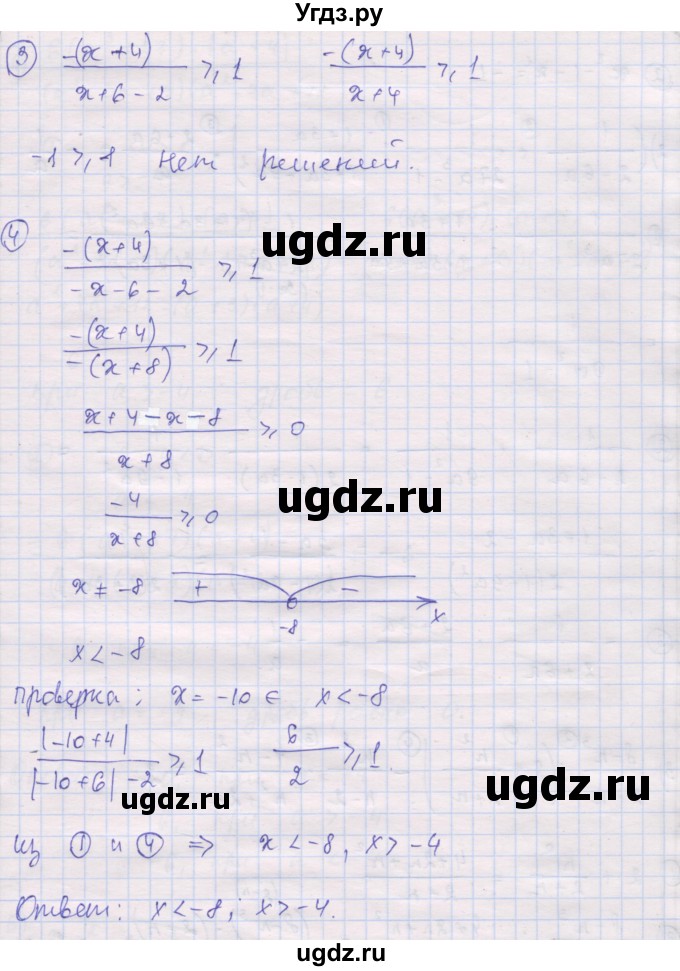 Угдз.ру
③ -(x+4)/(x+6-2) ⩾ 1    -(x+4)/(x+4) ⩾ 1
-1 ⩾ 1 нет решений.
④ -(x+4)/(-x-6-2) ⩾ 1
ugdz.ru
ugdz.ru
-(x+4)/-(x+8) ⩾ 1
(x+4-x-8)/(x+8) ⩾ 0
ugdz.ru
-4/(x+8) ⩾ 0
x ≠ -8    +    -
-8    x
x < -8
проверка; x = -10 ∈ x < -8
|-10+4|/(|-10+6|-2) ⩾ 1    6/2 ⩾ 1.
ugdz.ru
ugdz.ru
из ① и ④ ⇒ x < -8, x > -4
Ответ: x < -8; x > -4.
ugdz.ru